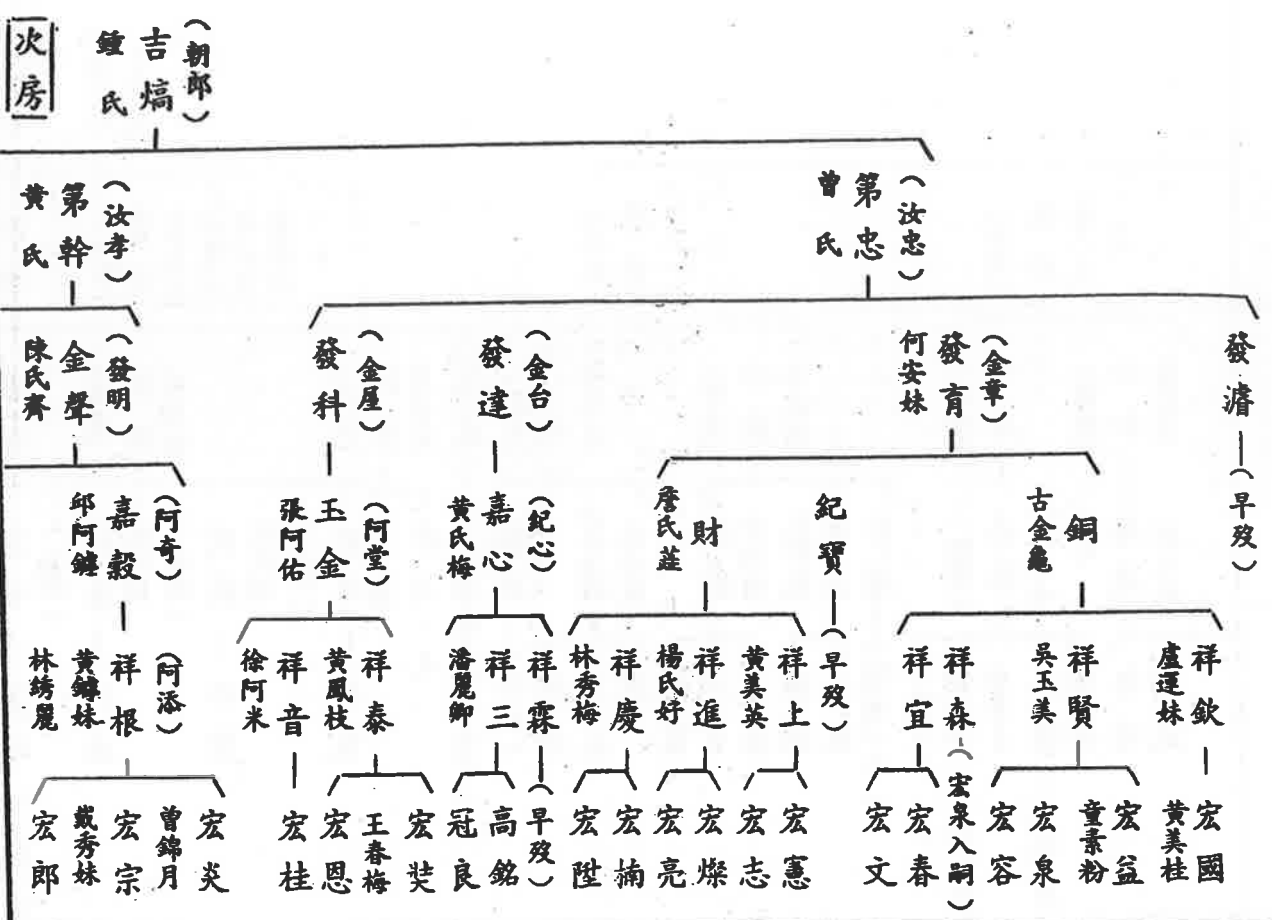 次房
(朝郎)
吉熇
鍾氏
(汝忠)
第忠
曾氏
(汝孝)
第幹
黃氏
發濬
(早歿)
(金章)
發育
何安妹
(金台)
發達
(金屋)
發科
(發明)
金聲
陳氏齊
銅
古金龜
紀寶
(早歿)
財
詹氏莛
(紀心)
嘉心
黃氏梅
(阿堂)
玉金
張阿佑
(阿奇)
嘉穀
邱阿
祥欽
盧運妹
祥賢
吳玉美
祥森
(宏泉入嗣)
祥宜
祥上
黃美英
祥進
楊氏好
祥慶
林秀梅
祥霖
(早歿)
祥三
潘麗卿
祥泰
黃鳳枝
祥音
徐阿米
(阿添)
祥根
黃妹
林綉麗
宏國
黃美桂
宏益
童素粉
宏泉
宏容
宏春
宏文
宏憲
宏志
宏燦
宏亮
宏楠
宏陞
高銘
冠良
宏奘
王春梅
宏恩
宏桂
宏炎
曾錦月
宏宗
戴秀妹
宏郎